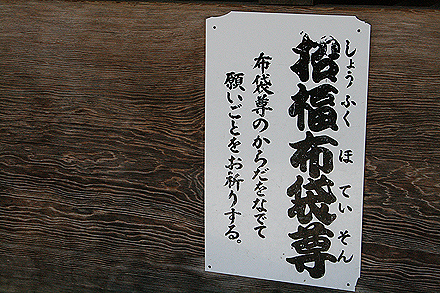 招福布袋尊
しょうふくほていそん
布袋尊のからだをなでて
願いごとをお祈りする。